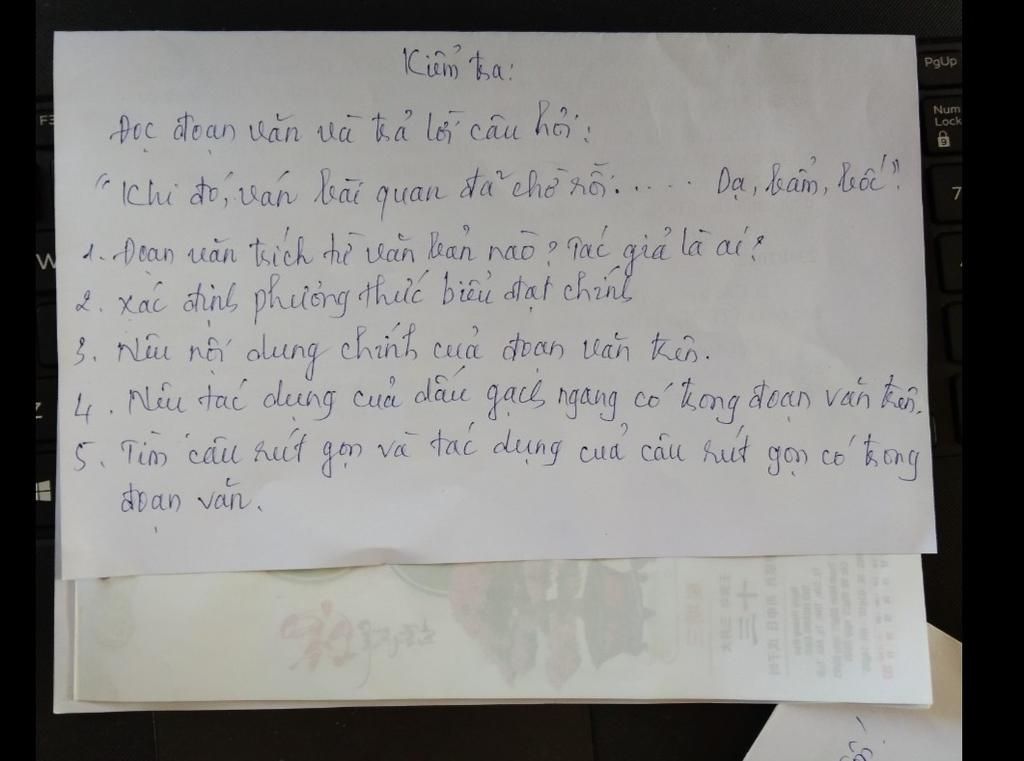 Kiểm tra:
Đọc đoạn văn và trả lời câu hỏi:
"Khi đó, ván bài quan đã chờ rồi. .... Dạ, bẩm, bốc".
1. Đoạn văn trích từ văn bản nào? Tác giả là ai?
2. Xác định phương thức biểu đạt chính
3. Nêu nội dung chính của đoạn văn trên.
4. Nêu tác dụng của dấu gạch ngang có trong đoạn văn trên.
5. Tìm câu rút gọn và tác dụng của câu rút gọn có trong
đoạn văn.
PgUp
Num
Lock
9
7
F3
W
Z